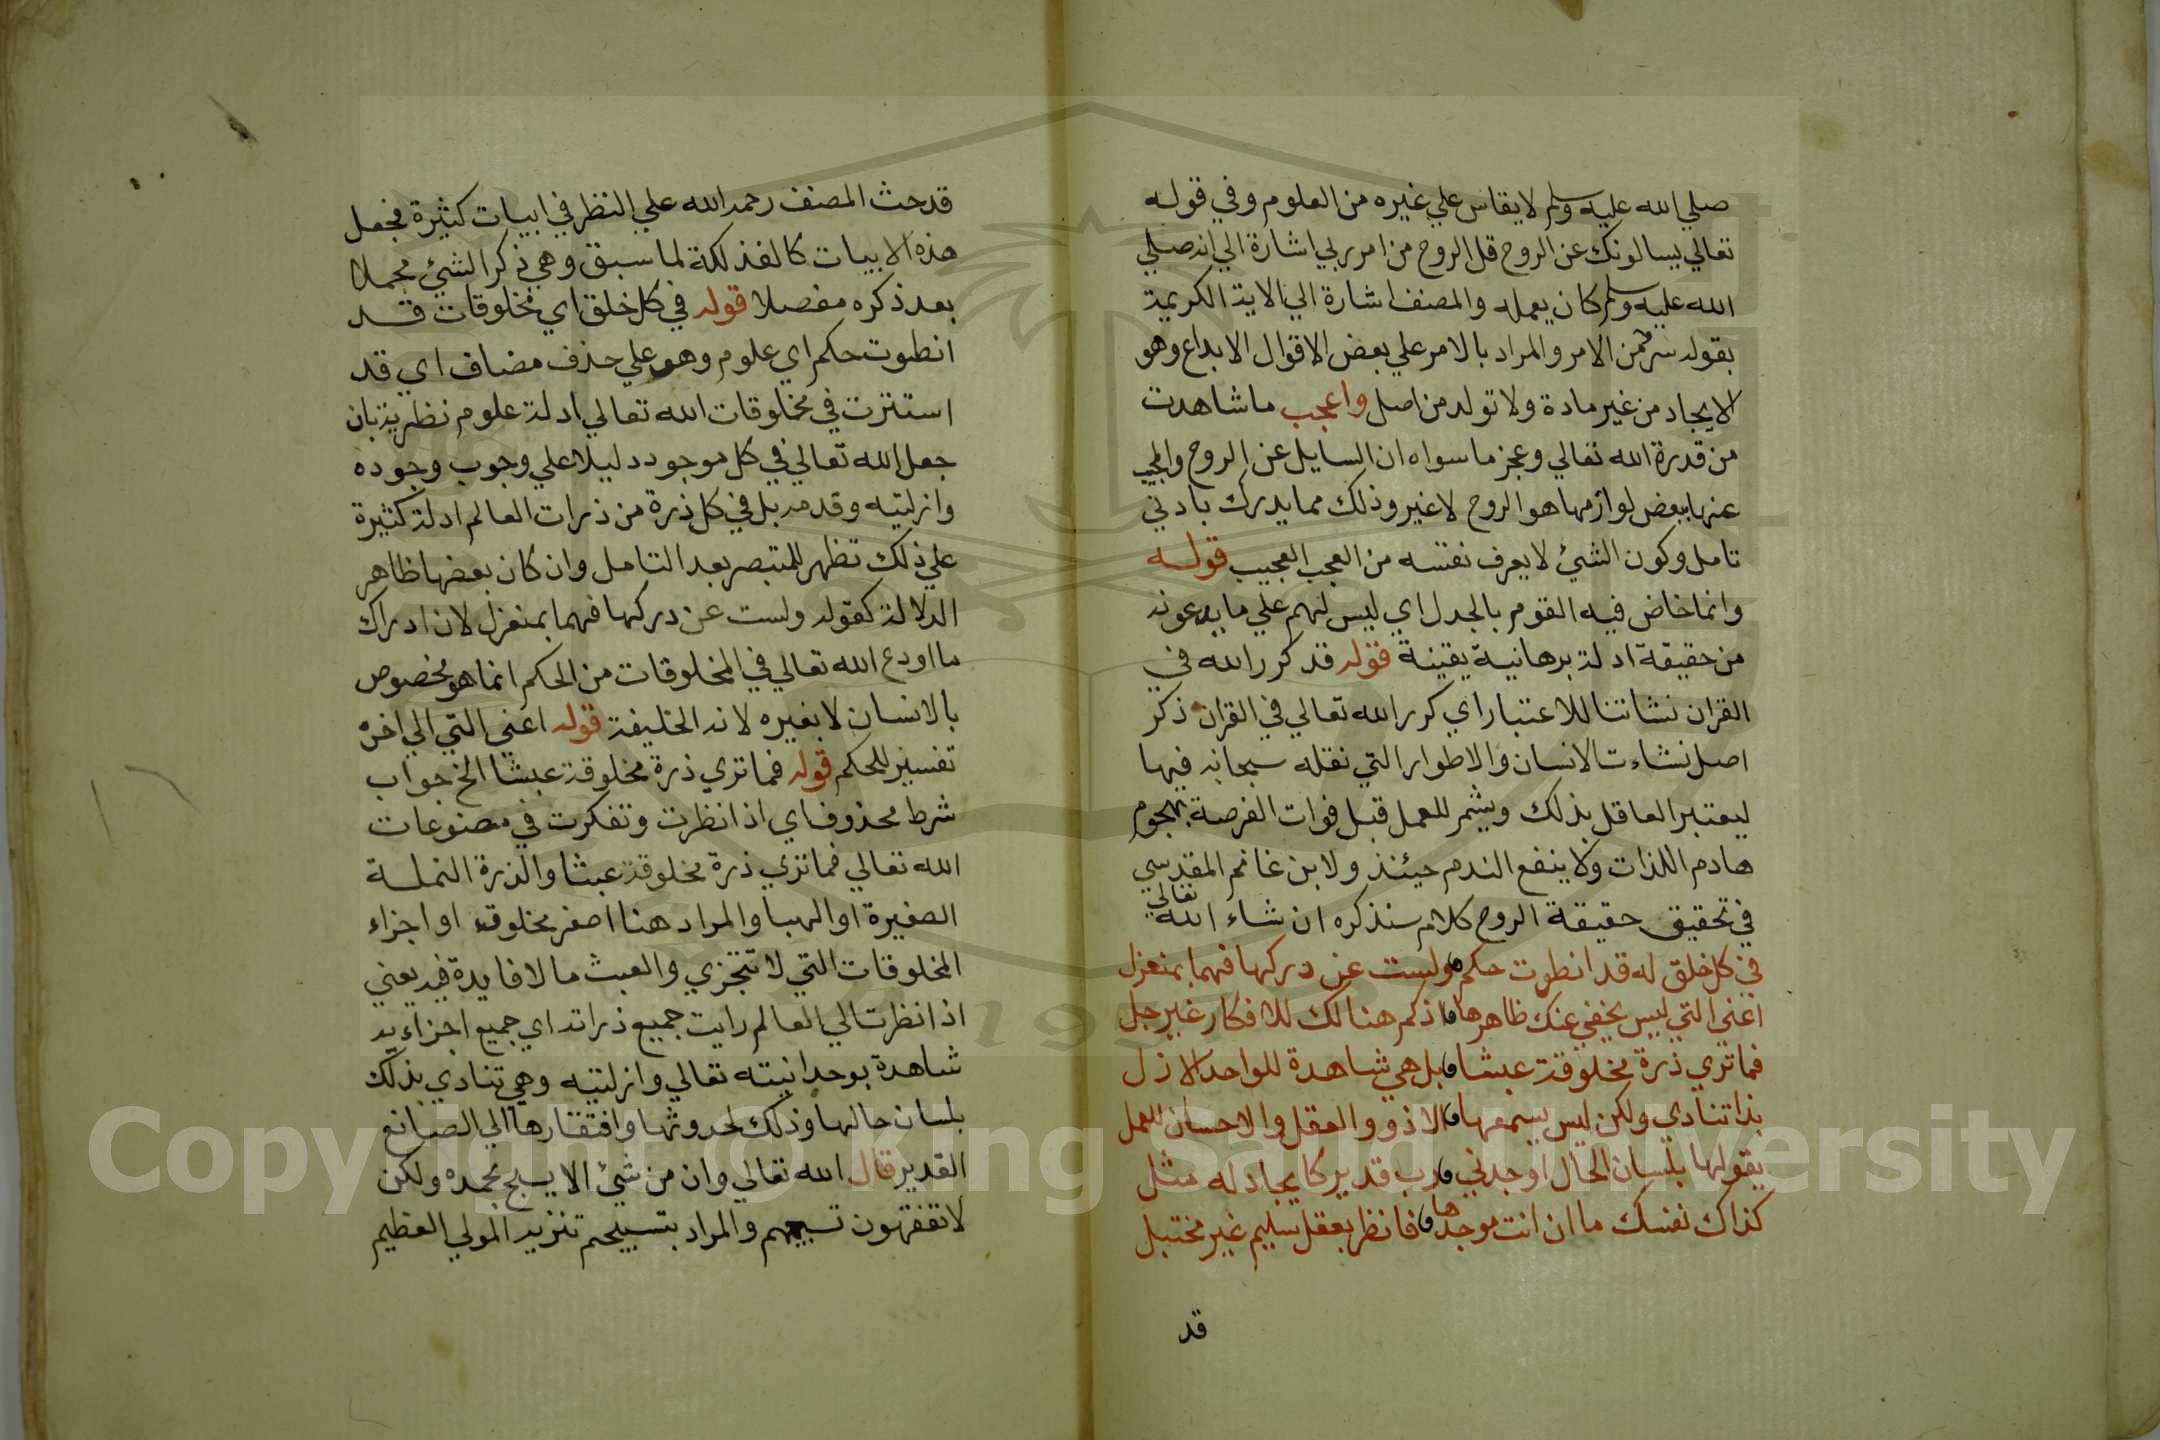 صلي الله عليه وسلم لا يقاس علي غيره من العلوم وفي قوله
تعالي يسالونك عن الروح قل الروح من امر ربي اشارة الي انه صلي
الله عليه وسلم كان يعمله والمصنف اشارة الي الاية الكريمة
بقوله سر من الامر والمراد بالامر علي بعض الاقوال الابداع وهو
الايجاد من غير مادة ولا تولد من اصل واعجب ما شاهدت
من قدرة الله تعالي وعجز ما سواه ان السايل عن الروح والمجيب
عنها ببعض لوازمها هو الروح لا غير وذلك مما يدرك بادني
تامل وكون الشئ لا يعرف نفسه من العجب العجيب قوله
وانما خاض فيه القوم بالجدل اي ليس لهم علي ما يدعونه
من حقيقة ادلة برهانية يقينة قوله قد كرر الله في
القران نشاتنا للاعتبار اي كرر الله تعالي في القران ذكر
اصل نشاءت الانسان والاطوار التي نقله سبحانه فيها
ليعتبر العاقل بذلك ويشمر للعمل قبل فوات الفرصة بهجوم
هادم اللذات ولا ينفع الندم حيئنذ ولابن غانم المقدسي
في تحقيق حقيقة الروح كلام سنذكره ان شاء الله تعالي
في كل خلق له قد انطوت حكم ولست عن دركها فهما بمنعزل
اعني التي ليس يخفي عنك ظاهرها اذ كم هنالك للافكار غير جل
فما تري ذرة مخلوقة عبثا بل هي شاهدة للواحد الازل
بذا تنادي ولكن ليس يسمعها الا ذوو العقل والاحسان للعمل
يقولها بلسان الحال اوجدني رب قدير كايجاد له مثل
كذاك نفسك ما ان انت موجدها فانظر بعقل سليم غير مختبل
قد
قد حث المصنف رحمه الله علي النظر في ابيات كثيرة فجعل
هذه الابيات كالفذلكة لما سبق وهي ذكر الشئ مجملا
بعد ذكره مفصلا قوله في كل خلق اي مخلوقات قد
انطوت حكم اي علوم وهو علي حذف مضاف اي قد
استترت في مخلوقات الله تعالي ادلة علوم نظرية بان
جعل الله تعالي في كل موجود دليلا علي وجوب وجوده
وازليته وقدمه بل في كل ذرة من ذرات العالم ادلة كثيرة
علي ذلك تظهر للمتبصر بعد التامل وان كان بعضها ظاهر
الدلالة كقوله ولست عن دركها فهما بمنعزل لان ادراك
ما اودع الله تعالي في المخلوقات من الحكم انما هو مخصوص
بالانسان لا بغيره لانه الخليفة قوله اعني التي الي اخره
تفسير للحكم قوله فما تري ذرة مخلوقة عبثا الخ جواب
شرط محذوف اي اذا نظرت وتفكرت في مصنوعات
الله تعالي فما تري ذرة مخلوقة عبثا والذرة النملة
الصغيرة او الهبا والمراد هنا اصغر مخلوقه او اجزاء
المخلوقات التي لا تتجزي والعبث ما لا فايدة فيه يعني
اذا نظرت الي العالم رايت جميع ذراته اي جميع اجزاءيه
شاهدة بوحدانيته تعالي وازليته وهي تنادي بذلك
بلسان حالها وذلك لحدوثها وافتقارها الي الصانع
القدير قال الله تعالي وان من شئ الا يسبح بحمده ولكن
لا تفقهون تسبيحهم والمراد بتسبيحهم تنزيه المولي العظيم
Copyright © King Saud University